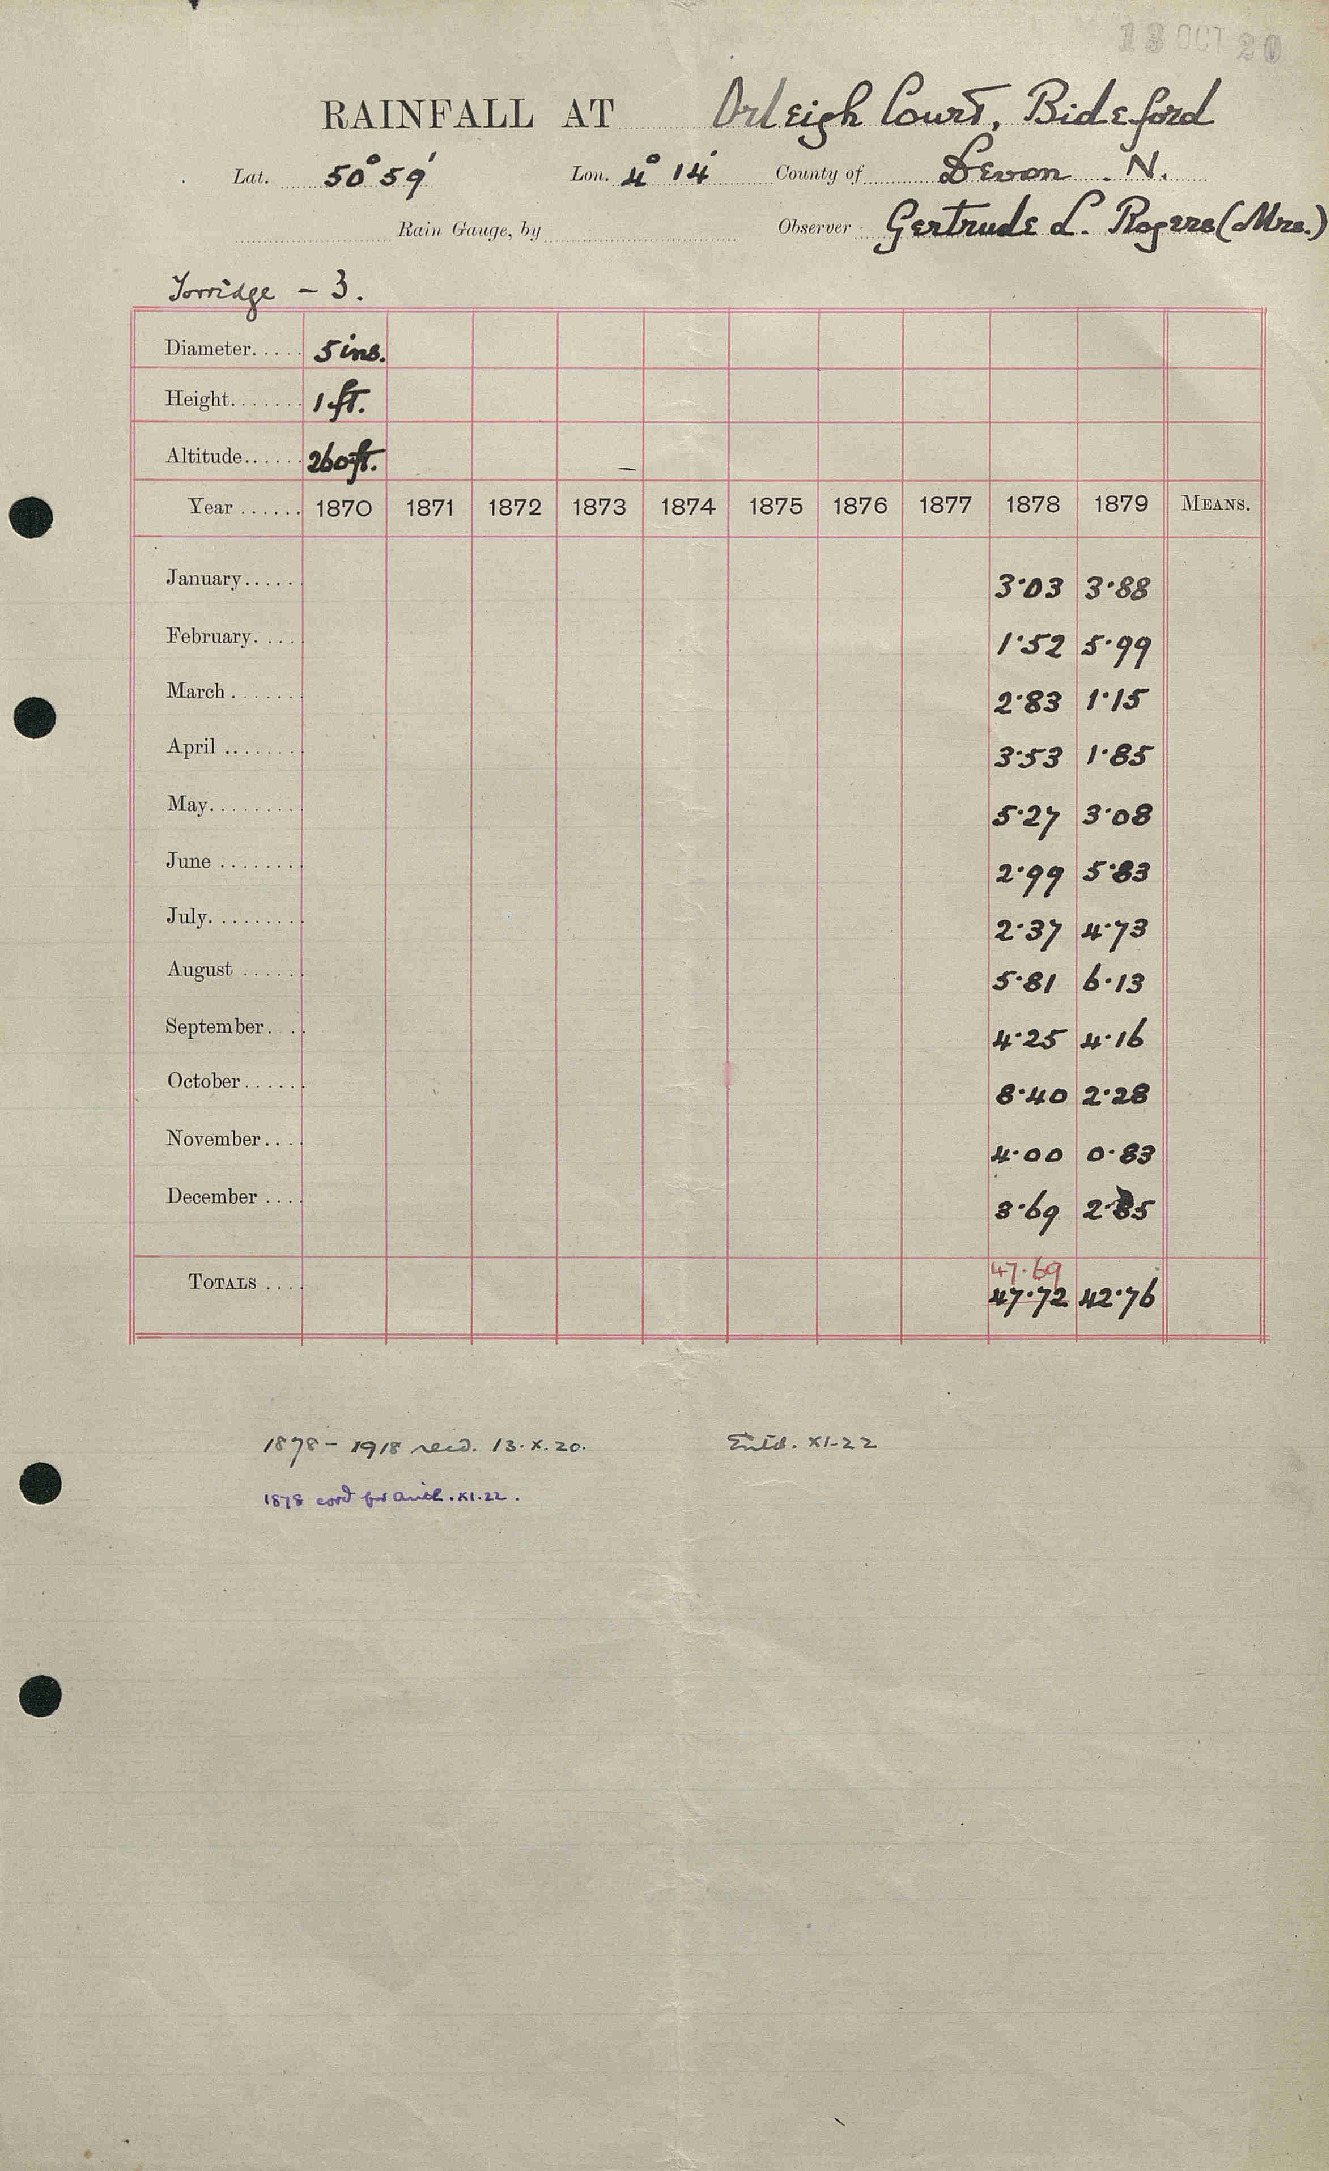 13 OCT 20
RAINFALL AT Orleigh Court, Bideford
Lat. 50° 59' Lon. 4° 14' County of Devon. N.
Rain Gauge, by Observer Gertrude L. Rogers (Mrs.)
Torridge - 3.
Diameter..... 5 ins.
Height....... 1 ft.
Altitude...... 260 ft.
Year ...... 1870 1871 1872 1873 1874 1875 1876 1877 1878 1879 MEANS.
January..... 3·03 3·88
February..... 1·52 5·99
March ....... 2·83 1·15
April ........ 3·53 1·85
May......... 5·27 3·08
June ........ 2·99 5·83
July......... 2·37 4·73
August ...... 5·81 6·13
September.... 4·25 4·16
October...... 8·40 2·28
November.... 4·00 0·83
December .... 3·69 2·85
47·69
TOTALS .... 47·72 42·76
1878 - 1918 recd. 13.X.20. Entd. XI.22
1878 cord for arith. XI.22.